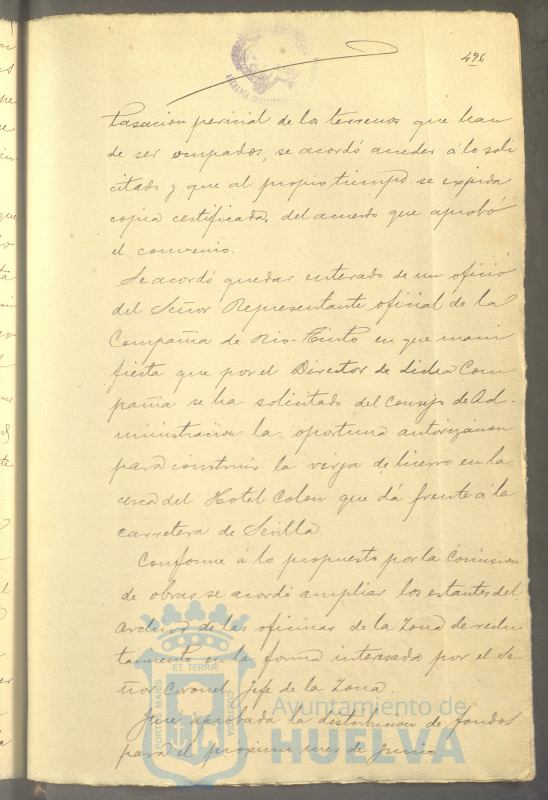 496
tasacion pericial de los terrenos que han
de ser ocupados, se acordó acceder á lo soli
citado y que al propio tiempo se expida
copia certificada, del acuerdo que aprobó
el convenio.
Se acordó quedar enterado de un oficio
del Señor Representante oficial de la
Compañia de Rio-Tinto en que mani
fiesta que por el Director de dicha Com
pañia se ha solicitado del Consejo de Ad-
ministracion la oportuna autorizacion
para construir la verja de hierro en la
cerca del Hotel Colon que dá frente á la
carretera de Sevilla.
Conforme á lo propuesto por la Comision
de obras se acordó ampliar los estantes del
Archivo de las oficinas de la Zona de reclu
tamiento en la forma interesada por el Se-
ñor Coronel Jefe de la Zona.
Fué aprobada la distribucion de fondos
para el próximo mes de Junio
PORTUS MARIS
ET TERRÆ
CUSTODIA
Ayuntamiento de
HUELVA